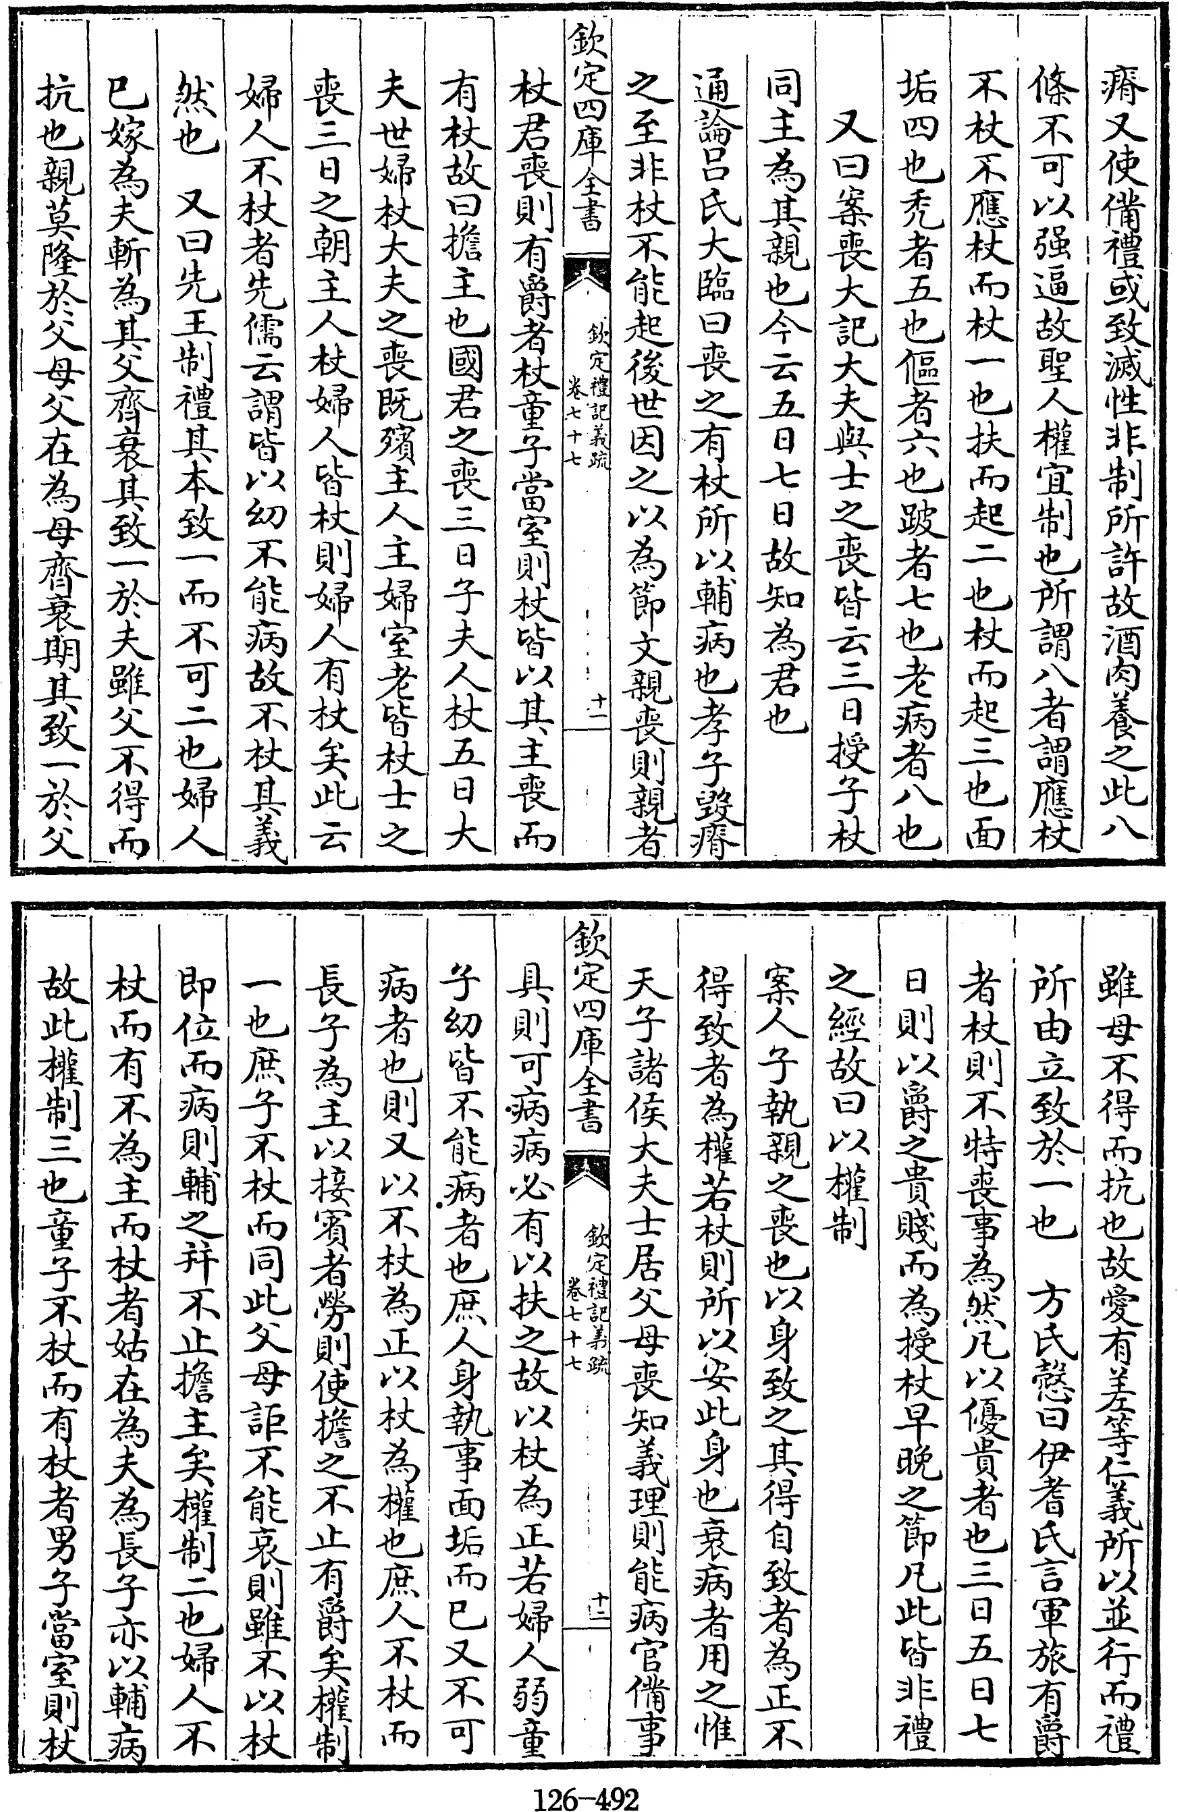 瘠又使備禮或致滅性非制所許故酒肉養之此八
條不可以强逼故聖人權宜制也所謂八者謂應杖
不杖不應杖而杖一也扶而起二也杖而起三也面
垢四也秃者五也傴者六也跛者七也老病者八也
又曰案喪大記大夫與士之喪皆云三日授子杖
同主為其親也今云五日七日故知為君也
通論呂氏大臨曰喪之有杖所以輔病也孝子毀瘠
之至非杖不能起後世因之以為節文親喪則親者
欽定四庫全書
欽定禮記義疏
卷七十七
十一
杖君喪則有爵者杖童子當室則杖皆以其主喪而
有杖故曰擔主也國君之喪三日子夫人杖五日大
夫世婦杖大夫之喪既殯主人主婦室老皆杖士之
喪三日之朝主人杖婦人皆杖則婦人有杖矣此云
婦人不杖者先儒云謂皆以幼不能病故不杖其義
然也 又曰先王制禮其本致一而不可二也婦人
已嫁為夫斬為其父齊衰其致一於夫雖父不得而
抗也親莫隆於父母父在為母齊衰期其致一於父
雖母不得而抗也故愛有差等仁義所以並行而禮
所由立致於一也 方氏慤曰伊耆氏言軍旅有爵
者杖則不特喪事為然凡以優貴者也三日五日七
日則以爵之貴賤而為授杖早晚之節凡此皆非禮
之經故曰以權制
案人子執親之喪也以身致之其得自致者為正不
得致者為權若杖則所以安此身也衰病者用之惟
天子諸侯大夫士居父母喪知義理則能病官備事
欽定四庫全書
欽定禮記義疏
卷七十七
十二
具則可病病必有以扶之故以杖為正若婦人弱童
子幼皆不能病者也庶人身執事面垢而已又不可
病者也則又以不杖為正以杖為權也庶人不杖而
長子為主以接賓者勞則使擔之不止有爵矣權制
一也庶子不杖而同此父母詎不能哀則雖不以杖
即位而病則輔之并不止擔主矣權制二也婦人不
杖而有不為主而杖者姑在為夫為長子亦以輔病
故此權制三也童子不杖而有杖者男子當室則杖
126-492